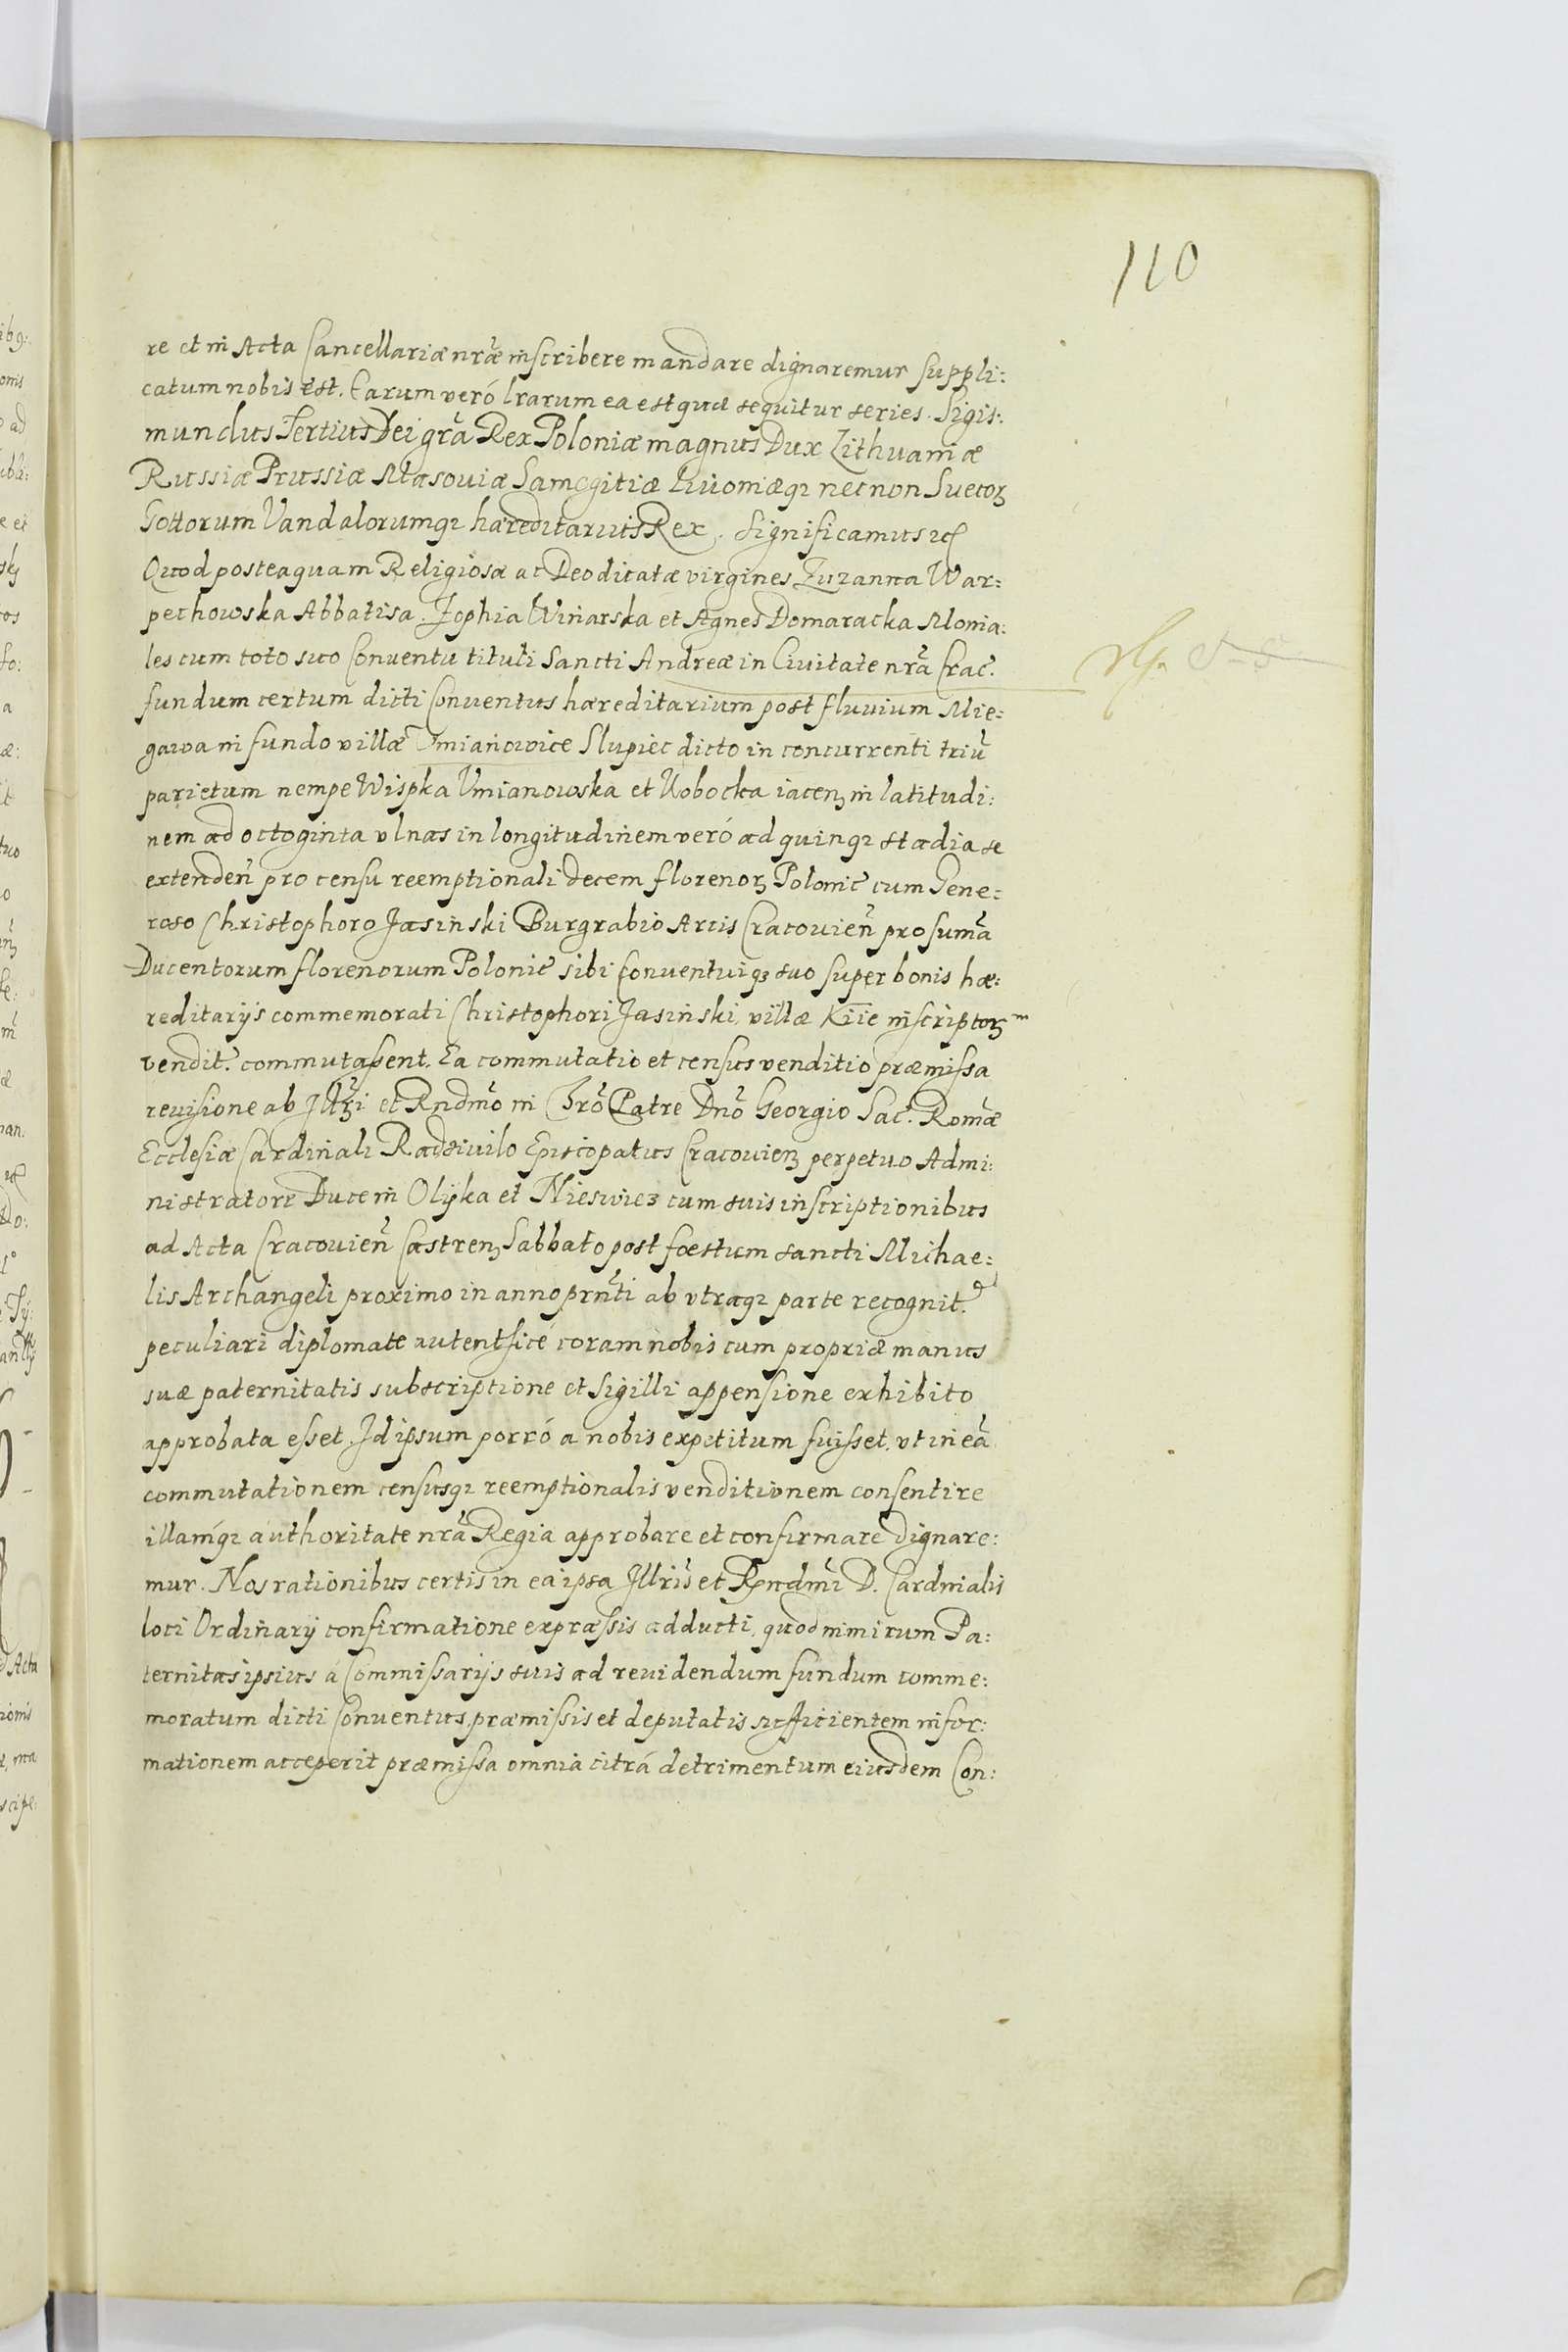 110
re et in Acta Cancellariæ nrãe inscribere mandare dignaremur suppli:
catum nobis est. Earum veró lrarum ea est quæ sequitur series. Sigis:
mundus Tertius Dei grã Rex Poloniæ magnus Dux Lithuaniæ
Russiæ Prussiæ Masouiæ Samogitiæ Liuoniæqꝫ necnon Suecoꝝ
Gottorum Vandalorumqꝫ hæreditarius Rex. Significamus
Quod posteaquam Religiosæ ac Deo dicatæ virgines Zuzanna War:
pechowska Abbatisa, Zophia Winarska et Agnes Domaracka Monia:
les cum toto suo Conuentu tituli Sancti Andreæ in Ciuitate nrã Crac.
fundum certum dicti Conuentus hæreditarium post fluuium Mie:
gawa in fundo villæ Umianowice Slupiec dicto in concurrenti triũ
parietum nempe Wispka Vmianowska et Kobocka iacenꝫ in latitudi:
nem ad octoginta vlnas in longitudinem veró ad quinqꝫ stadia se
extendeñ pro censu reemptionali decem florenoꝝ Polonic̃ cum Gene:
roso Christophoro Jasinski Burgrabio Arcis Cracouieñ pro sum̃a
Ducentorum florenorum Polonic̃ sibi Conuentuiqꝫ suo super bonis hæ:
reditarijs commemorati Christophori Jasinski, villæ Kiie inscriptoꝝ
vendit. commutassent. Ea commutatio et census venditio præmissa
reuisione ab Illr̃i et Rndm̃o in Chrõ Patre Dnõ Georgio Sac. Romãe
Ecclesiæ Cardinali Radziuilo Episcopatus Cracouienꝫ perpetuo Admi:
nistratore Duce in Olyka et Nieswież cum suis inscriptionibus
ad Acta Cracouieñ Castrenꝫ Sabbato post festum sancti Michae:
lis Archangeli proximo in anno prñti ab vtraqꝫ parte recognit.
peculiari diplomate autenticé coram nobis cum propriæ manus
suæ paternitatis subscriptione et Sigilli appensione exhibito
approbata esset. Id ipsum porró a nobis expetitum fuisset, vt in eã
commutationem censusqꝫ reemptionalis venditionem consentire
illamqꝫ authoritate nrã Regia approbare et confirmare dignare:
mur. Nos rationibus certis in ea ipsa Illris̃ et Rndm̃i D. Cardinalis
loci Ordinarij confirmatione expræssis adducti, quod nimirum Pa:
ternitas ipsius á Commissarijs suis ad reuidendum fundum comme:
moratum dicti Conuentus, præmissis et deputatis sufficientem infor:
mationem acceperit præmissa omnia citrá detrimentum eiusdem Con: